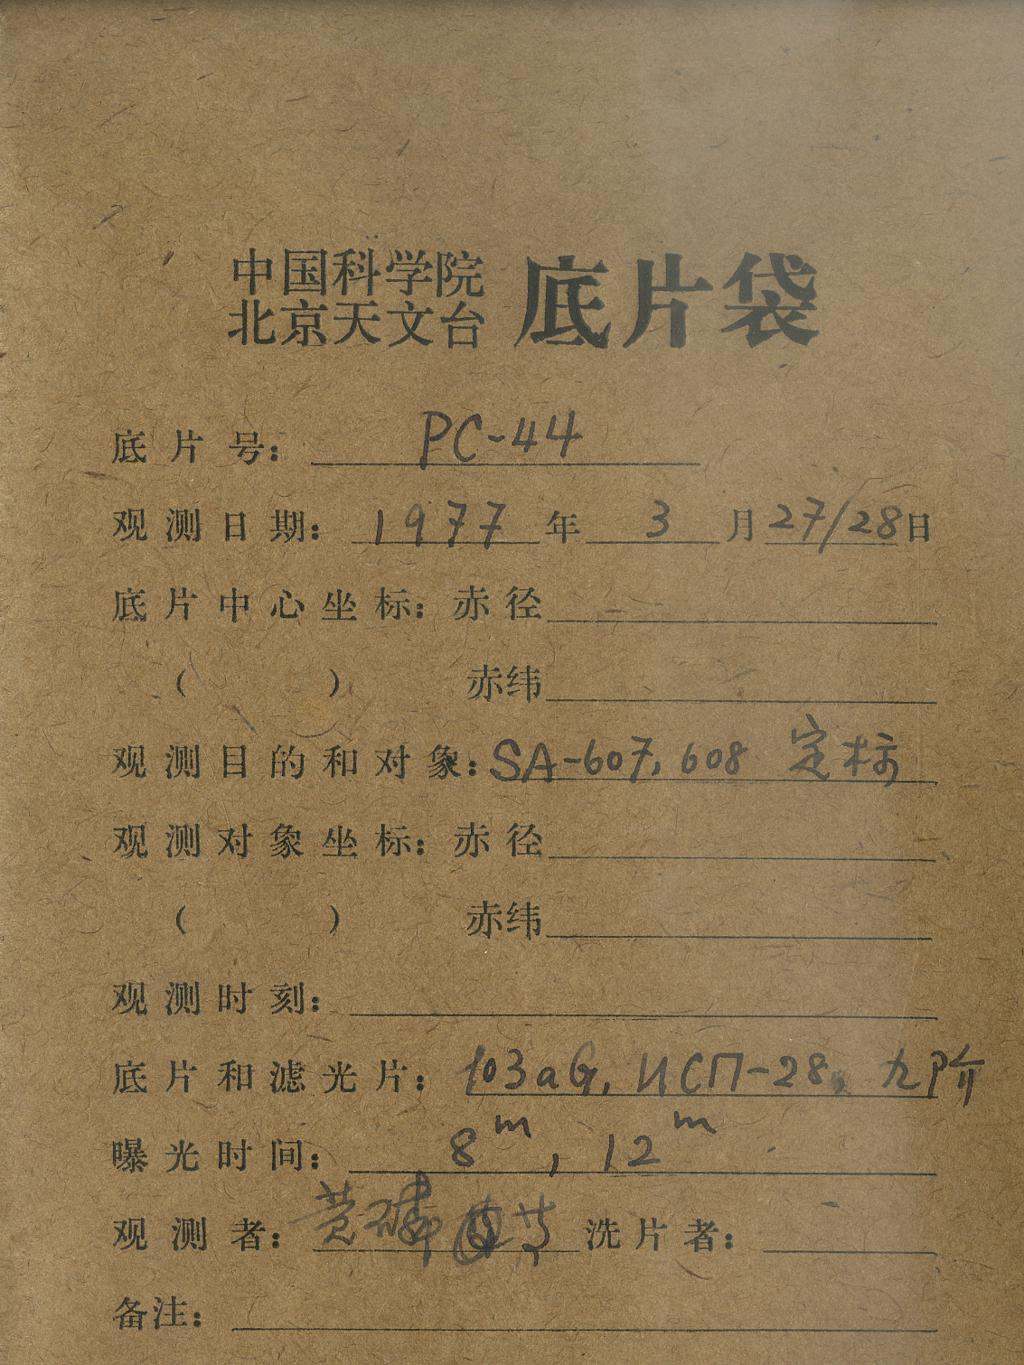 中国科学院
北京天文台 底片袋
底片号： PC-44
观测日期： 1977 年 3 月 27/28 日
底片中心坐标：赤径
（ ） 赤纬
观测目的和对象：SA-607, 608 定标
观测对象坐标：赤径
（ ） 赤纬
观测时刻：
底片和滤光片： 103aG, ИСП-28, 九阶
曝光时间： 8m, 12m
观测者： 黄磷 洗片者：
备注：